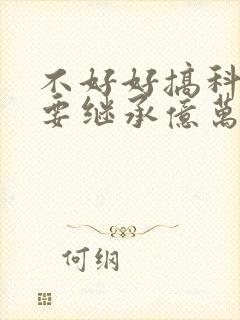 不好好搞科
要继承億萬
何纲